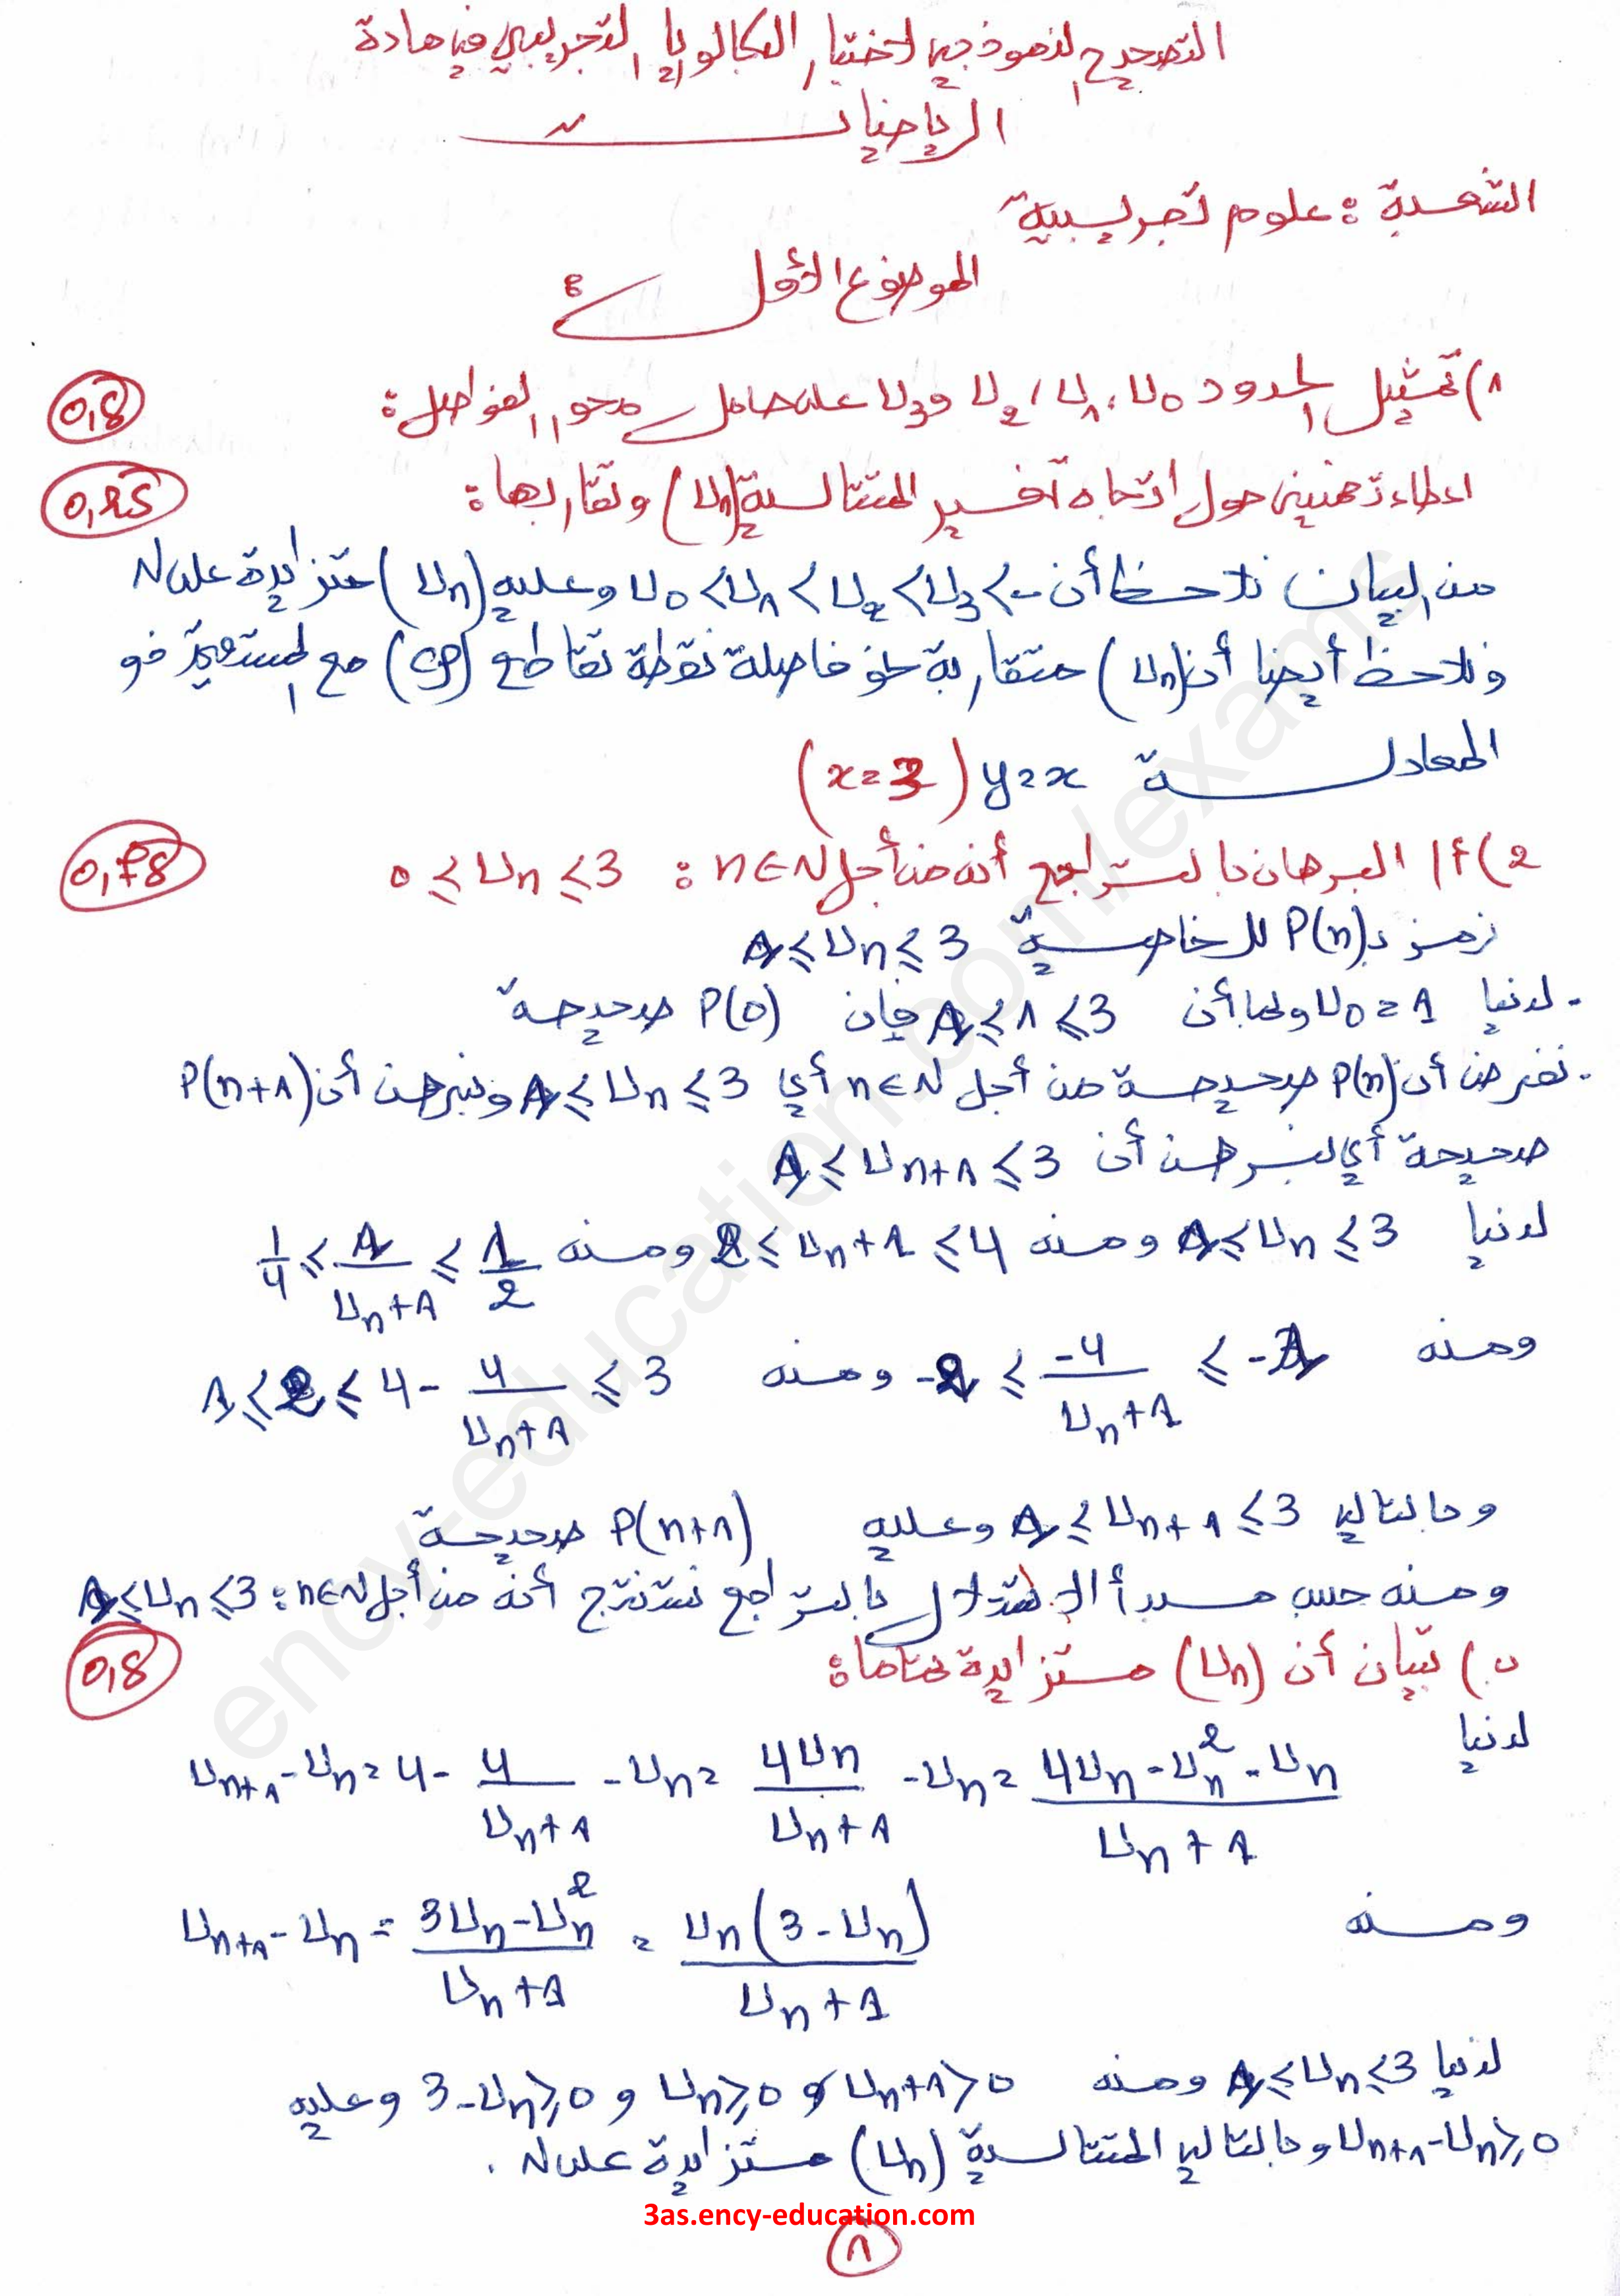 التصحيح النموذجي لاختبار البكالوريا التجريبي في مادة
الرياضيات
الشعبة : علوم تجريبية
الموضوع الأول :
1) تمثيل الحدود U₀ ، U₁ ، U₂ و U₃ على حامل محور الفواصل :
0,5
اعطاء تخمين حول اتجاه تغير المتتالية (Uₙ) وتقاربها :
0,25
من البيان نلاحظ أن U₀ < U₁ < U₂ < U₃ < .. وعليه (Uₙ) متزايدة على N
ونلاحظ أيضا أن (Uₙ) متقاربة نحو فاصلة نقطة تقاطع (Cf) مع المستقيم ذو
المعادلة y = x (x = 3)
2) أ / البرهان بالتراجع أنه من أجل n ∈ N : 0 ≤ Uₙ ≤ 3
0,75
نرمز بـ P(n) للخاصية 1 ≤ Uₙ ≤ 3
- لدينا U₀ = 1 وبما أن 1 ≤ 1 ≤ 3 فإن P(0) صحيحة
- نفرض أن P(n) صحيحة من أجل n ∈ N أي 1 ≤ Uₙ ≤ 3 ونبرهن أن P(n+1)
صحيحة أي نبرهن أن 1 ≤ Uₙ₊₁ ≤ 3
لدينا 1 ≤ Uₙ ≤ 3 ومنه 2 ≤ Uₙ + 1 ≤ 4 ومنه 1/4 ≤ 1/(Uₙ + 1) ≤ 1/2
ومنه -2 ≤ -4/(Uₙ + 1) ≤ -1 ومنه 1 ≤ 2 ≤ 4 - 4/(Uₙ + 1) ≤ 3
وبالتالي 1 ≤ Uₙ₊₁ ≤ 3 وعليه P(n+1) صحيحة
ومنه حسب مبدأ الاستدلال بالتراجع نستنتج أنه من أجل n ∈ N : 1 ≤ Uₙ ≤ 3
ب) تبيان أن (Uₙ) متزايدة تماما :
0,5
لدينا
Uₙ₊₁ - Uₙ = 4 - 4/(Uₙ + 1) - Uₙ = 4Uₙ/(Uₙ + 1) - Uₙ = (4Uₙ - Uₙ² - Uₙ)/(Uₙ + 1)
ومنه Uₙ₊₁ - Uₙ = (3Uₙ - Uₙ²)/(Uₙ + 1) = Uₙ(3 - Uₙ)/(Uₙ + 1)
لدينا 1 ≤ Uₙ ≤ 3 ومنه Uₙ + 1 > 0 و Uₙ ≥ 0 و 3 - Uₙ ≥ 0 وعليه
Uₙ₊₁ - Uₙ ≥ 0 وبالتالي المتتالية (Uₙ) متزايدة على N .
3as.ency-education.com
1
ency-education.com/exams